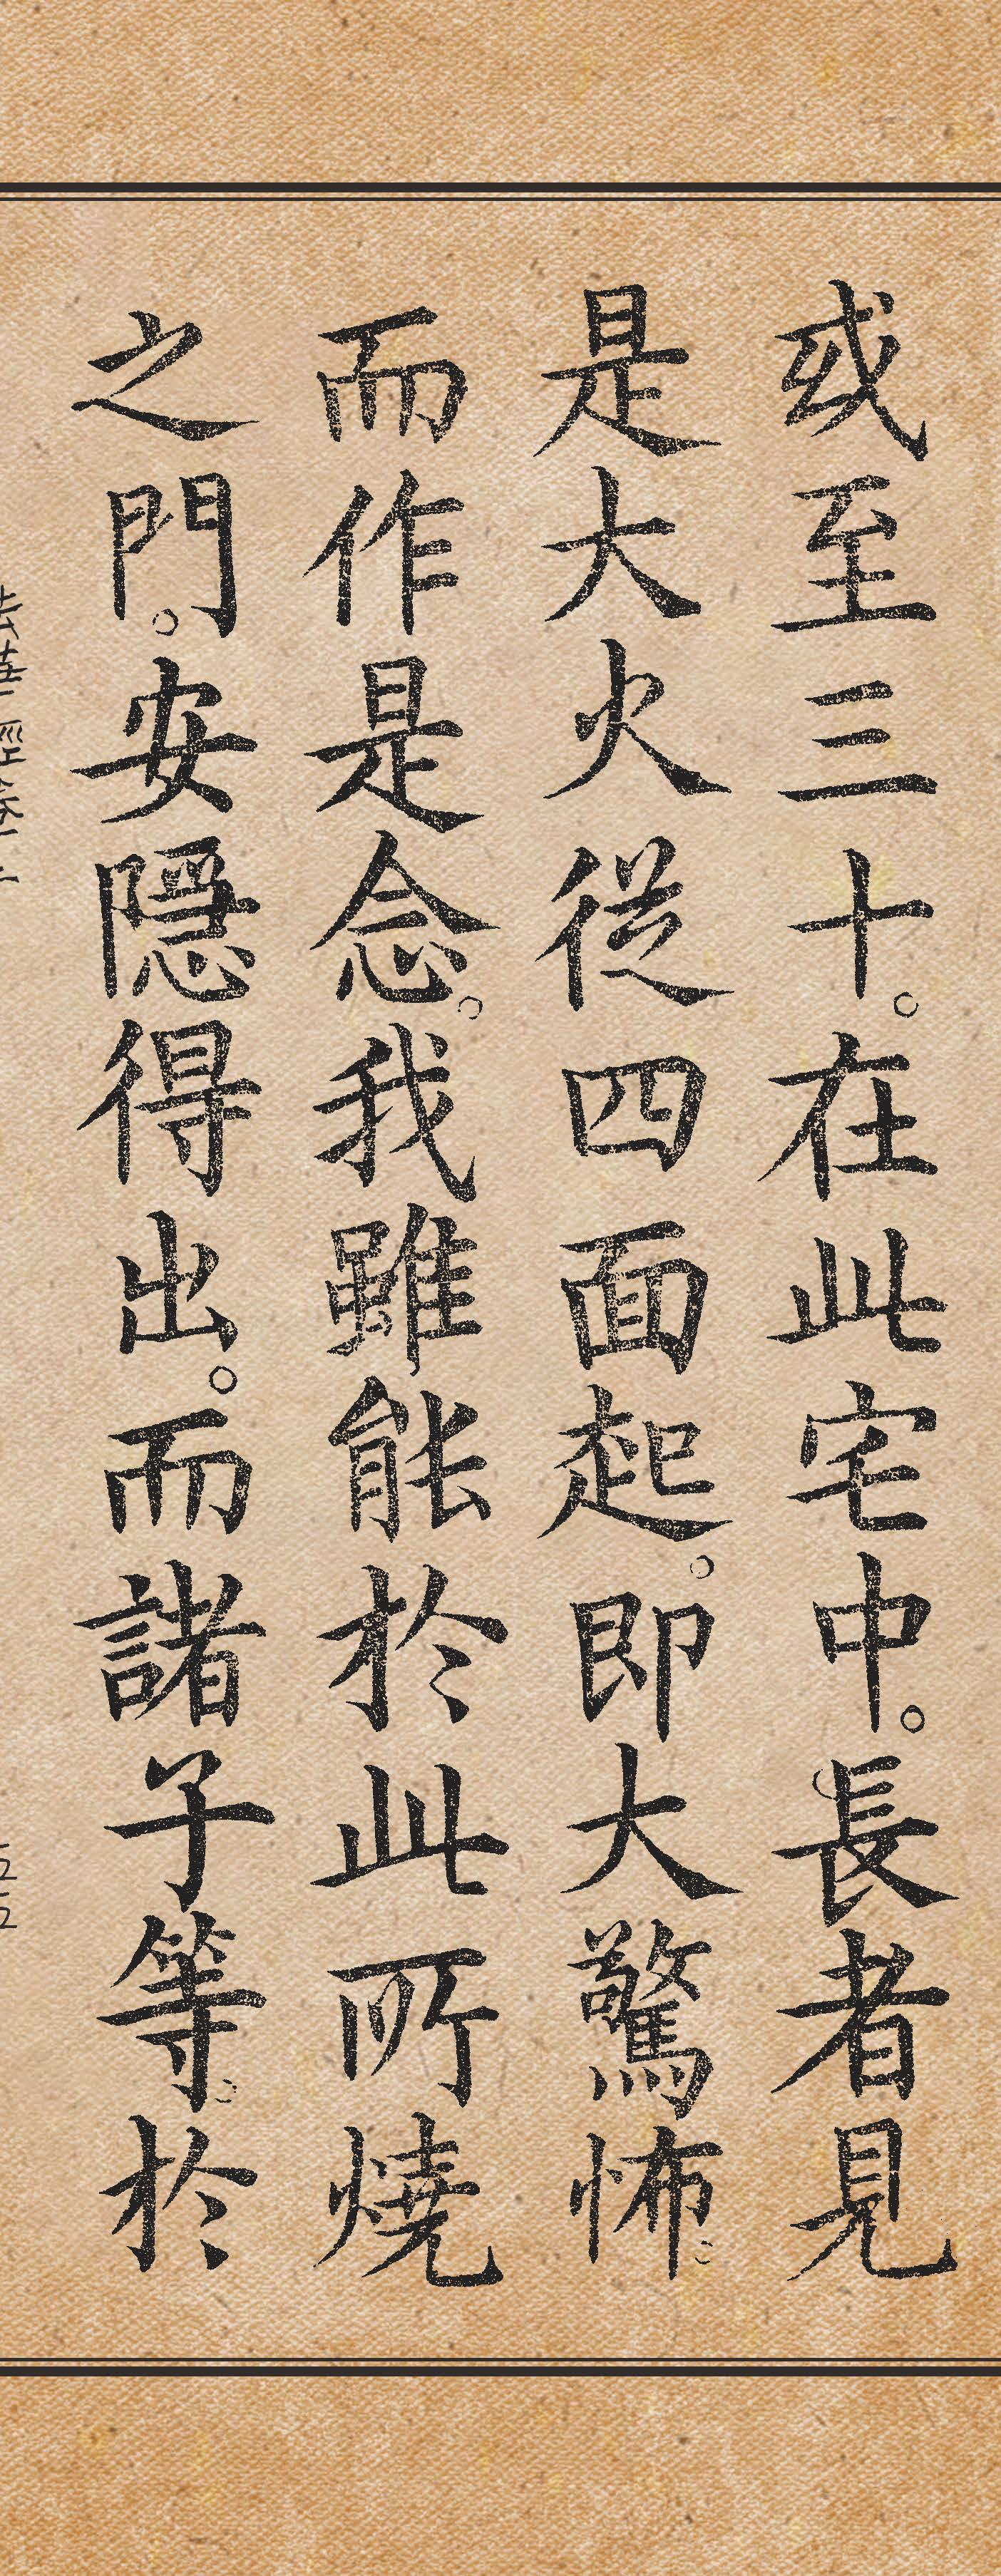 或至三十。在此宅中。長者見
是大火從四面起。即大驚怖。
而作是念。我雖能於此所燒
之門。安隱得出。而諸子等。於